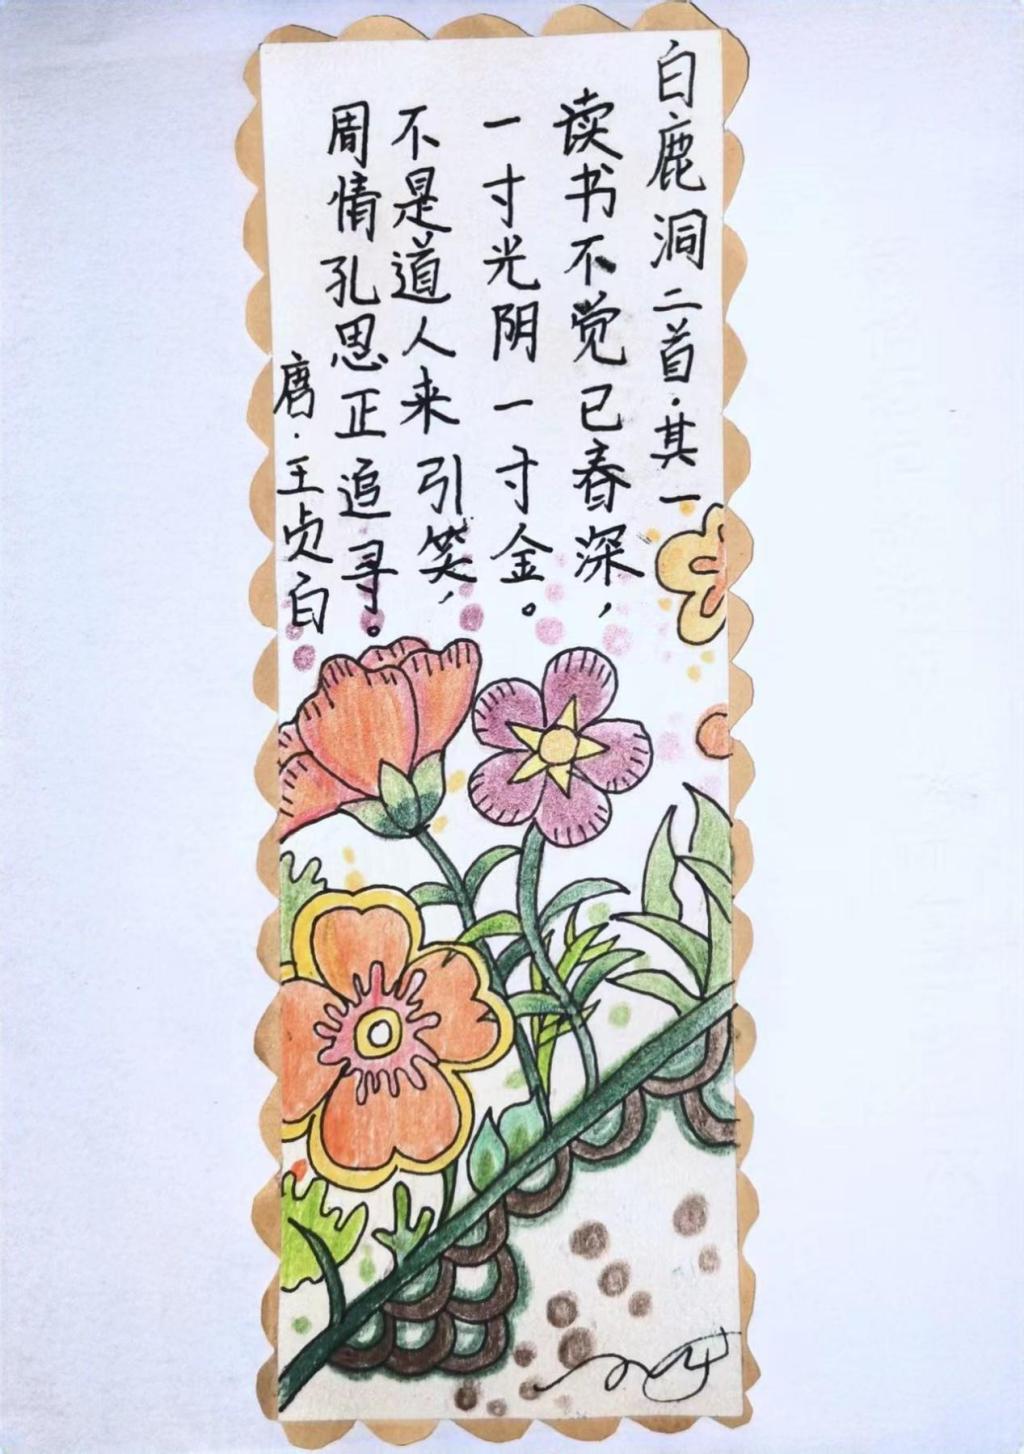 白鹿洞二首·其一
读书不觉已春深，
一寸光阴一寸金。
不是道人来引笑，
周情孔思正追寻。
唐·王贞白